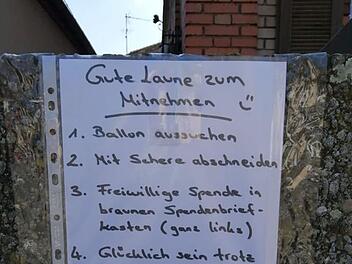 Gute Laune zum
Mitnehmen
1. Ballon aussuchen
2. Mit Schere abschneiden
3. Freiwillige Spende in
braunen Spendenbrief-
kasten (ganz links)
4. Glücklich sein trotz